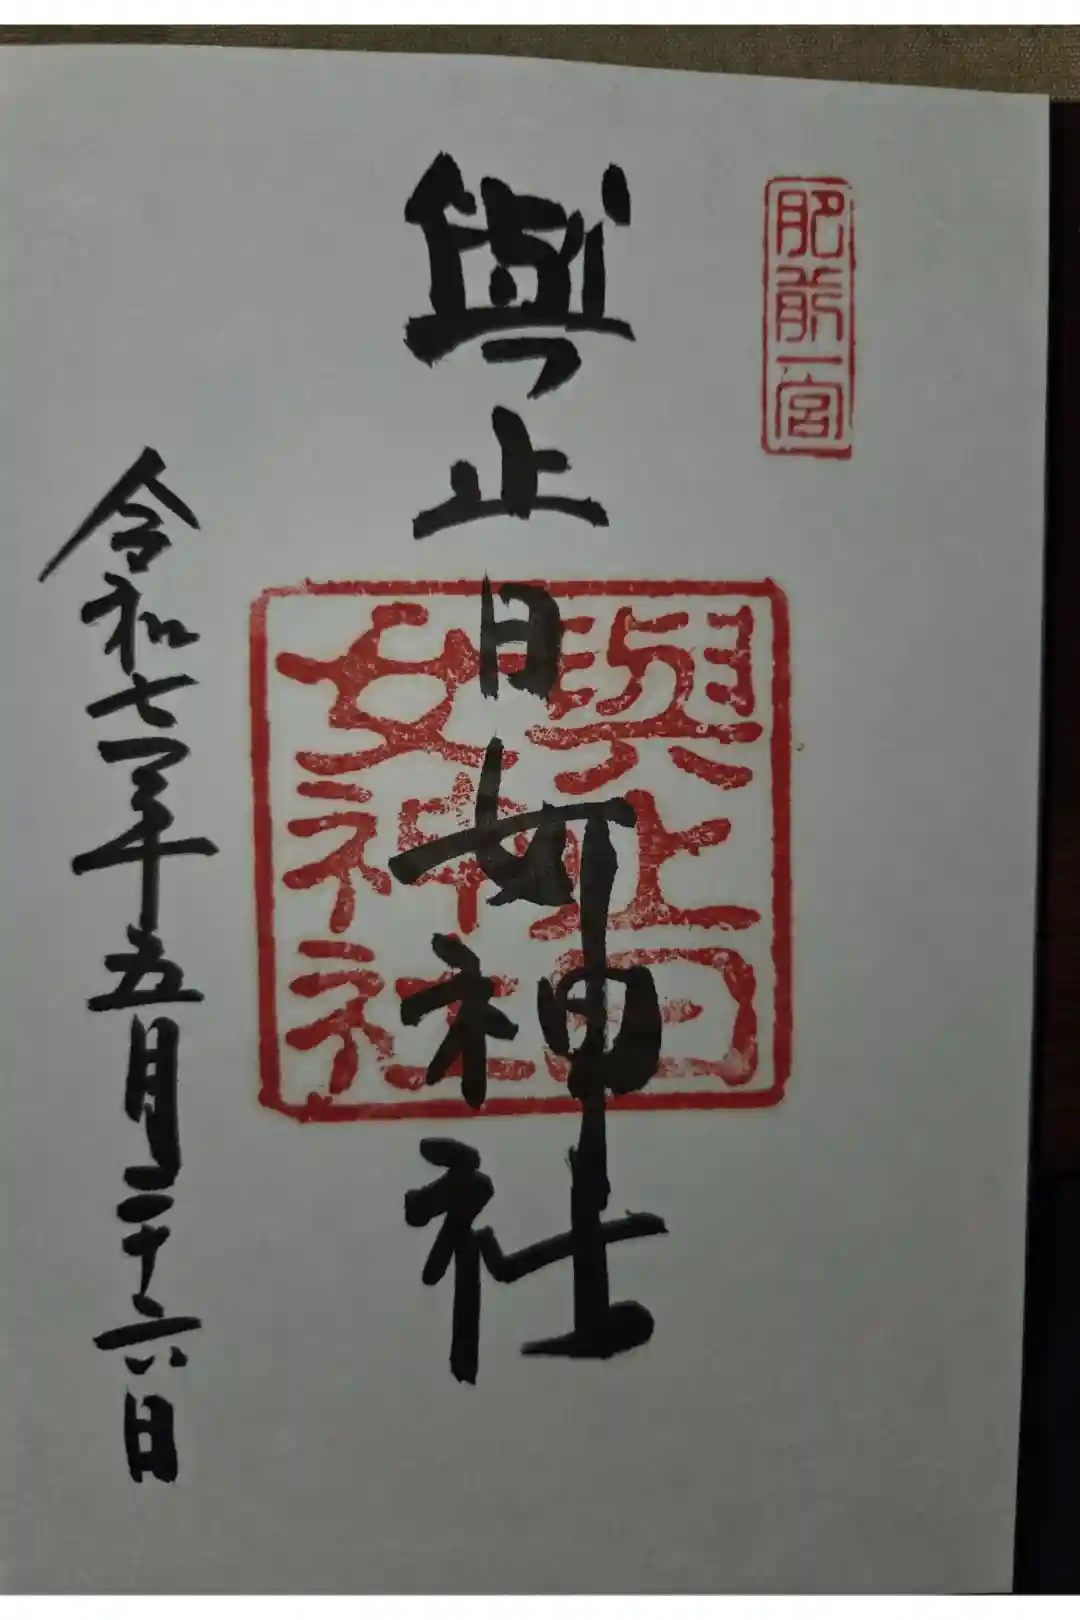 肥前一宮
與止日女神社
與止日
女神社
令和七年五月二十六日